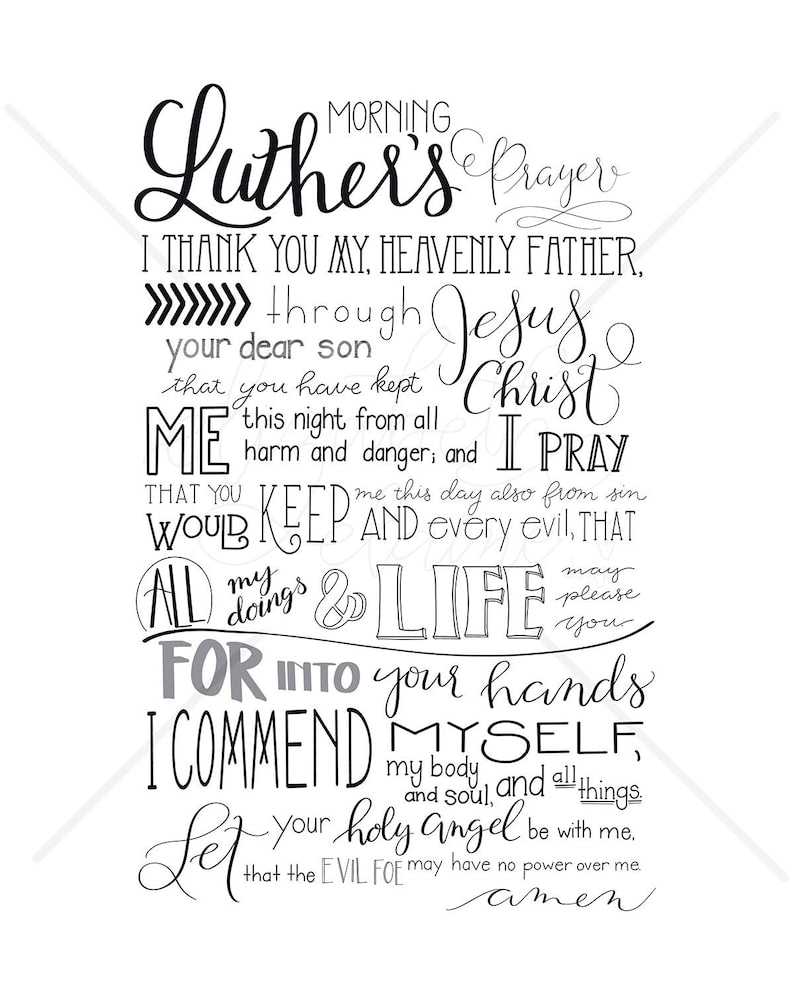 MORNING
Luther's Prayer
I THANK YOU MY, HEAVENLY FATHER,
through Jesus
your dear son
that you have kept Christ
ME this night from all
harm and danger; and I PRAY
THAT YOU KEEP me this day also from sin
WOULD AND every evil, THAT
ALL my doings & LIFE may please you.
FOR INTO your hands
I COMMEND MYSELF,
my body and soul, and all things.
Let your holy angel be with me,
that the EVIL FOE may have no power over me.
amen